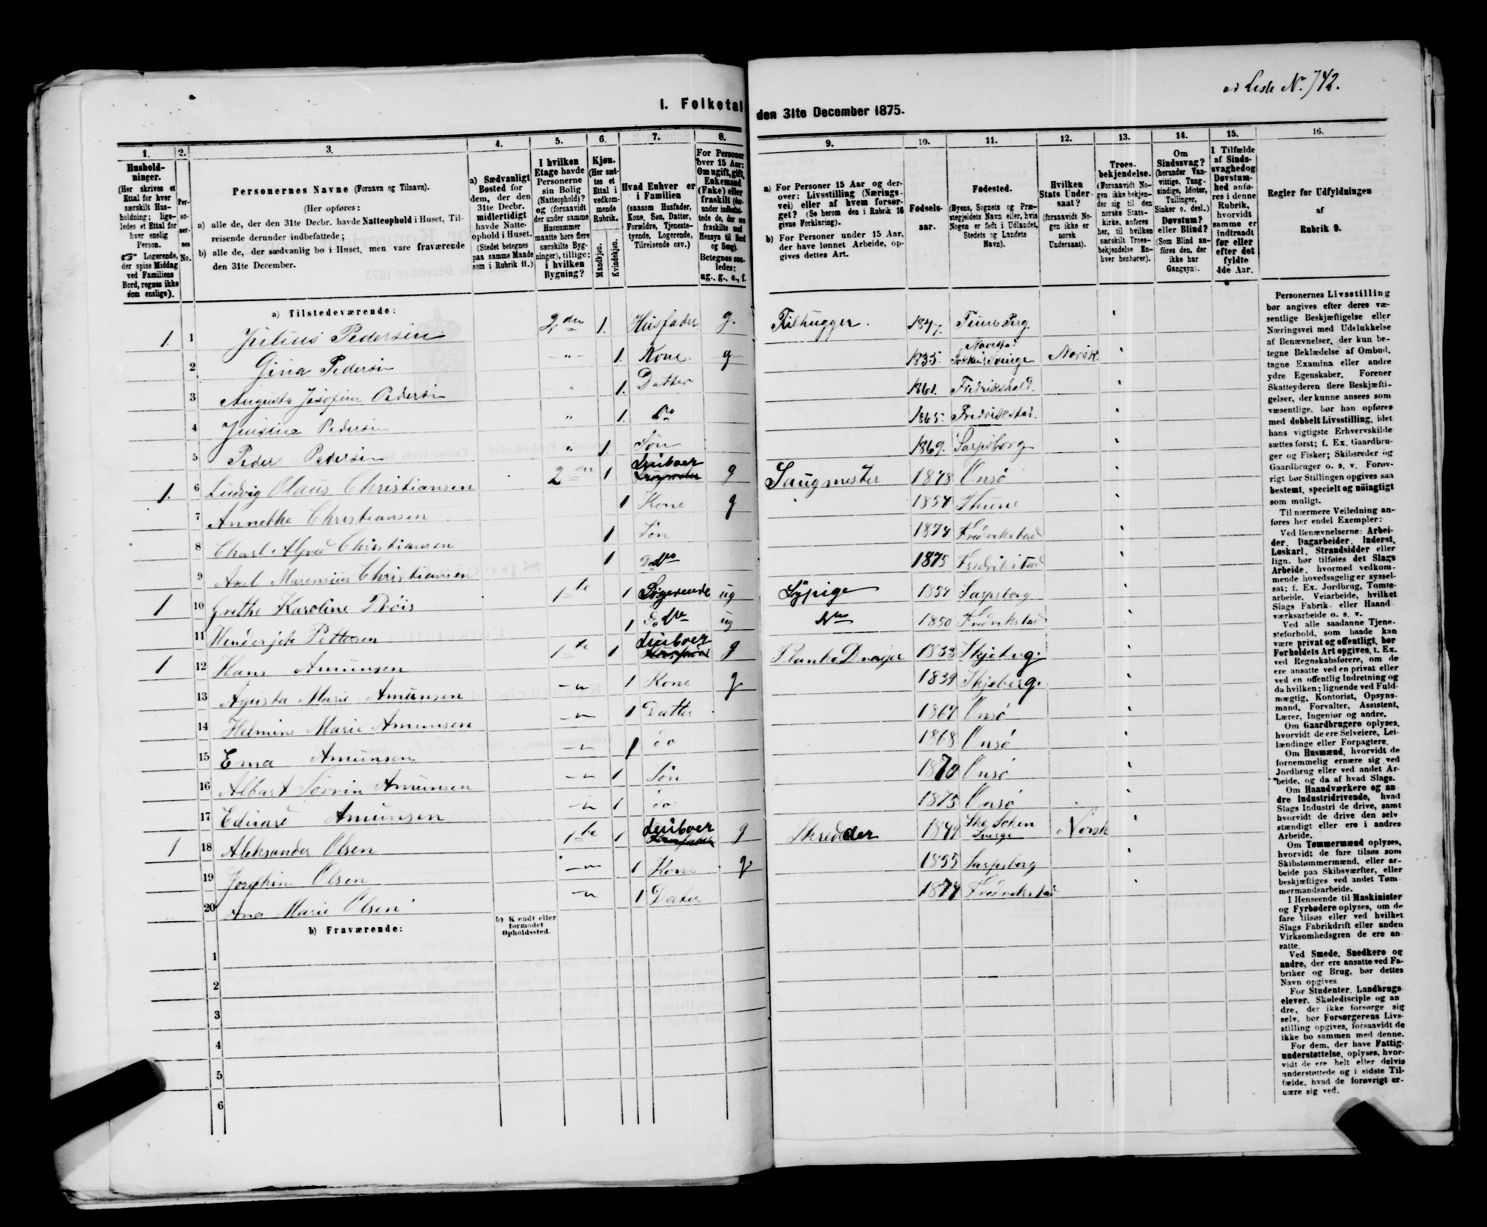 ad Liste No. 742.
I. Folketal
den 31te December 1875.
1.
Hushold-
ninger.
(Her skrives et
Ettal for hver
særskilt Hus-
holdning; lige-
ledes et Ettal for
hver enslig
Person.
☞ Logerende,
der spise Middag
ved Familiens
Bord, regnes ikke
som enslige).
2.
Per-
so-
ner-
nes
No.
3.
Personernes Navne (Fornavn og Tilnavn).
(Her opføres:
a) alle de, der den 31te Decbr. havde Natteophold i Huset, Til-
reisende derunder indbefattede;
b) alle de, der sædvanlig bo i Huset, men vare fraværende
den 31te December.
4.
a) Sædvanligt
Bosted for
dem, der den
31te Decbr.
midlertidigt
havde Natte-
ophold i Huset.
(Stedet betegnes
paa samme Maade
som i Rubrik 11.)
5.
I hvilken
Etage havde
Personerne
sin Bolig
(Natteophold)?
og (forsaavidt
der under samme
Husnummer
maatte høre flere
særskilte Byg-
ninger), tillige:
i hvilken
Bygning?
6.
Kjøn.
(Her sæt-
tes et
Ettal i
vedkom-
mende
Rubrik.)
Mandkjøn.
Kvindekjøn.
7.
Hvad Enhver er
i Familien
(saasom Husfader,
Kone, Søn, Datter,
Forældre, Tjeneste-
tyende, Logerende,
Tilreisende osv.)
8.
For Personer
over 15 Aar:
Om ugift, gift,
Enkemand
(Enke) eller
fraskilt
Betegnes saa-
ledes:
ug., g., e., f.
9.
a) For Personer 15 Aar og der-
over: Livsstilling (Nærings-
vei) eller af hvem forsør-
get? (Se herom den i Rubrik 16
givne Forklaring).
b) For Personer under 15 Aar,
der have lønnet Arbeide, op-
gives dettes Art.
10.
Fødsels-
aar.
11.
Fødested.
(Byens, Sognets og Præ-
stegjeldets Navn eller, hvis
Nogen er født i Udlandet,
Stedets og Landets
Navn).
12.
Hvilken
Stats Under-
saat?
(forsaavidt No-
gen ikke er
norsk
Undersaat).
13.
Troes-
bekjendelse.
(Forsaavidt No-
gen ikke bekjen-
der sig til den
norske Stats-
kirke, anføres
her, til hvilken
særskilt Troes-
bekjendelse En-
hver henhører).
14.
Om
Sindssvag?
(herunder Van-
vittige, Tung-
sindige, Idioter,
Tullinger,
Sinker o. desl.)
Døvstum?
eller Blind?
(Som Blind an-
føres den, der
ikke har
Gangsyn).
15.
I Tilfælde
af Sinds-
svaghed og
Døvstum-
hed anfø-
res i denne
Rubrik,
hvorvidt
samme er
indtraadt
før eller
efter det
fyldte
4de Aar.
16.
Regler for Udfyldningen
af
Rubrik 9.
a) Tilstedeværende:
1 1 Julius Pedersen 2den 1. Husfader g. Filhugger. 1847. Tunsberg.
2 Gina Pedersen 1. Kone g 1835. Norsk
3 Augusta Josefine Pedersen 1. Datter 1861. Fredrikshald.
4 Jensine Pedersen 1. do 1865. Fredrikstad.
5 Peder Pedersen 1 Søn 1869. Sarpsborg
1. 6 Ludvig Olaus Christiansen 2den 1 Leieboer g Saugmester 1848 Onsø
7 Annethe Christiansen 1 Kone g 1854
8 Charl Alfred Christiansen 1 Søn 1874 Fredrikstad
9 Axel Marensius Christiansen 1 do 1875 Fredrikstad
1 10 Grethe Karoline 1te 1 Logerende ug Sypige 1854 Sarpsborg
11 Pettersen 1 do ug do 1850 Fredrikstad
1 12 Hans Amunsen 1te 1 Leieboer g Planke Drager 1833 Skjeberg
13 Agusta Marie Amunsen 1 Kone g 1839 Skjeberg.
14 Helmine Marie Amunsen 1 Datter 1867 Onsø
15 Ema Amunsen 1 do 1868 Onsø
16 Albart Sevrin Amunsen 1 Søn 1870 Onsø
17 Edvart Amunsen 1 do 1875 Onsø
1 18 Aleksander Olsen 1te 1 Leieboer g Skredder 1849 Norsk
19 Josephine Olsen 1 Kone g 1855 Sarpsborg
20 Ana Marie Olsen 1 Dater 1874 Fredrikstad
b) Fraværende:
b) Kjendt eller
formodet
Opholdssted.
1
2
3
4
5
6
Personernes Livsstilling
bør angives efter deres væ-
sentlige Beskjæftigelse eller
Næringsvei med Udelukkelse
af Benævnelser, der kun be-
tegne Beklædelse af Ombud,
tagne Examina eller andre
ydre Egenskaber. Forener
Skatteyderen flere Beskjæfti-
gelser, der kunne ansees som
væsentlige, bør han opføres
med dobbelt Livsstilling, idet
hans vigtigste Erhvervskilde
sættes først; f. Ex. Gaardbru-
ger og Fisker; Skibsreder og
Gaardbruger o. s. v. Forøv-
rigt bør Stillingen opgives saa
bestemt, specielt og nøiagtigt
som muligt.
Til nærmere Veiledning an-
føres her endel Exempler:
Ved Benævnelserne: Arbei-
der, Dagarbeider, Inderst,
Løskarl, Strandsidder eller
lign. bør tilføies det Slags
Arbeide, hvormed vedkom-
mende hovedsagelig er syssel-
sat; f. Ex. Jordbrug, Tomte-
arbeide, Veiarbeide, hvilket
Slags Fabrik- eller Haand-
værksarbeide o. s. v.
Ved alle saadanne Tjene-
steforhold, som baade kan
være privat og offentligt, bør
Forholdets Art opgives, t. Ex.
ved Regnskabsførere, om de
ere ansatte ved en privat eller
ved en offentlig Indretning og
da hvilken; lignende ved Fuld-
mægtig, Kontorist, Opsyns-
mand, Forvalter, Assistent,
Lærer, Ingeniør og andre.
Om Gaardbrugere oplyses,
hvorvidt de ere Selveiere, Lei-
lændinge eller Forpagtere.
Om Husmænd, hvorvidt de
fornemmelig ernære sig ved
Jordbrug eller ved andet Ar-
beide, og da af hvad Slags.
Om Haandværkere og an-
dre Industridrivende, hvad
Slags Industri de drive, samt
hvorvidt de drive den selv-
stændigt eller ere i andres
Arbeide.
Om Tømmermænd oplyses,
hvorvidt de fare tilsøs som
Skibstømmermænd, eller ar-
beide paa Skibsværfter, eller
beskjæftiges ved andet Tøm-
mermandsarbeide.
I Henseende til Maskinister
og Fyrbødere oplyses, om de
fare tilsøs eller ved hvilket
Slags Fabrikdrift eller anden
Virksomhedsgren de ere an-
satte.
Ved Smede, Snedkere og
andre, der ere ansatte ved Fa-
briker og Brug, bør dettes
Navn opgives
For Studenter, Landbrugs-
elever, Skoledisciple og an-
dre, der ikke forsørge sig
selv, bør Forsørgerens Livs-
stilling opgives, forsaavidt de
ikke bo sammen med denne.
For dem, der have Fattig-
understøttelse, oplyses, hvor-
vidt de ere helt eller delvis
understøttede og i sidste Til-
fælde, hvad de forøvrigt er-
nære sig ved.